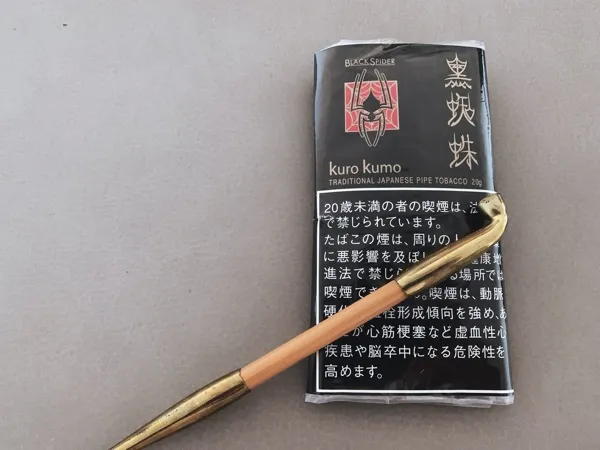 BLACK SPIDER
黒蜘蛛
kuro kumo
TRADITIONAL JAPANESE PIPE TOBACCO 20g
20歳未満の者の喫煙は、法
で禁じられています。
たばこの煙は、周りの
に悪影響を及ぼし 康増
進法で禁じら る場所では
喫煙でき 。喫煙は、動脈
硬 栓形成傾向を強め、
が心筋梗塞など虚血性心
疾患や脳卒中になる危険性を
高めます。